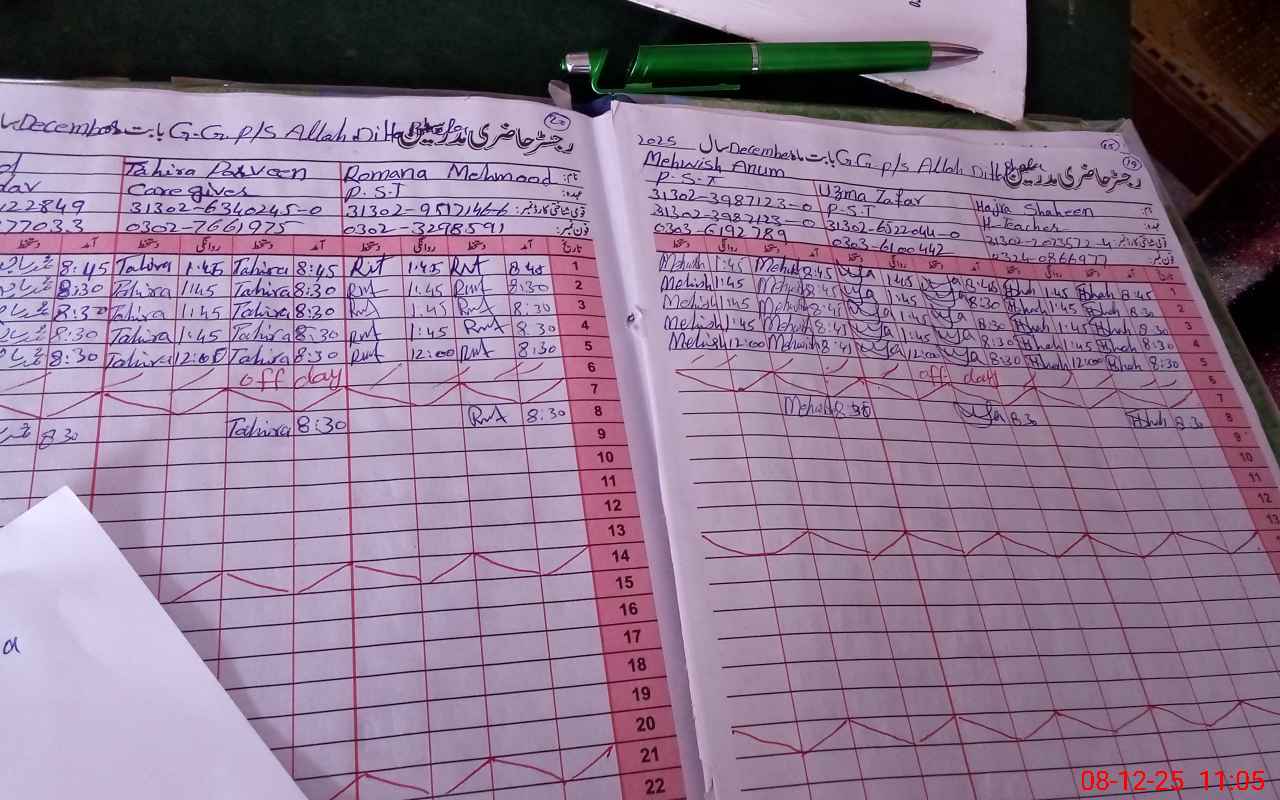 December بابت G.G. p/s Allah Ditta رجسٹر حاضری مدرسین
Tahira Parveen Romana Mehmood نام:
Care giver P.S.T عہدہ:
122849 31302-6340245-0 31302-9517146-6 قومی شناختی کارڈ نمبر:
77033 0302-7661975 0302-3298591 فون نمبر:
دستخط آمد دستخط روانگی دستخط آمد دستخط روانگی دستخط آمد تاریخ
8:45 Tahira 1:45 Tahira 8:45 Rmt 1:45 Rmt 8:45 1
8:30 Tahira 1:45 Tahira 8:30 Rmt 1:45 Rmt 8:30 2
8:30 Tahira 1:45 Tahira 8:30 Rmt 1:45 Rmt 8:30 3
8:30 Tahira 1:45 Tahira 8:30 Rmt 1:45 Rmt 8:30 4
8:30 Tahira 12:00 Tahira 8:30 Rmt 12:00 Rmt 8:30 5
off day 6
7
8:30 Tahira 8:30 Rmt 8:30 8
9
10
11
12
13
14
15
16
17
18
19
20
21
22
2025 سال December بابت G.G. p/s Allah Ditta رجسٹر حاضری مدرسین
Mehwish Anum Uzma Zafar Hajra Shaheen نام:
P.S.T P.S.T H-Teacher عہدہ:
31302-3987123-0
31302-3987123-0 31302-6322044-0 31302-2073572-4 قومی شناختی کارڈ نمبر:
0303-6192789 0303-6100442 0324-0866977 فون نمبر:
دستخط روانگی دستخط آمد دستخط روانگی دستخط آمد دستخط روانگی دستخط آمد تاریخ
Mehwish 1:45 Mehwish 8:45 1:45 8:45 1:45 8:45 1
Mehwish 1:45 Mehwish 8:45 1:45 8:30 1:45 8:30 2
Mehwish 1:45 Mehwish 8:41 1:45 8:30 1:45 8:30 3
Mehwish 1:45 Mehwish 8:41 1:45 8:30 1:45 8:30 4
Mehwish 12:00 Mehwish 8:41 12:00 8:30 12:00 8:30 5
off day 6
7
Mehwish 8:30 8:30 8:30 8
9
10
11
12
13
a
08-12-25 11:05